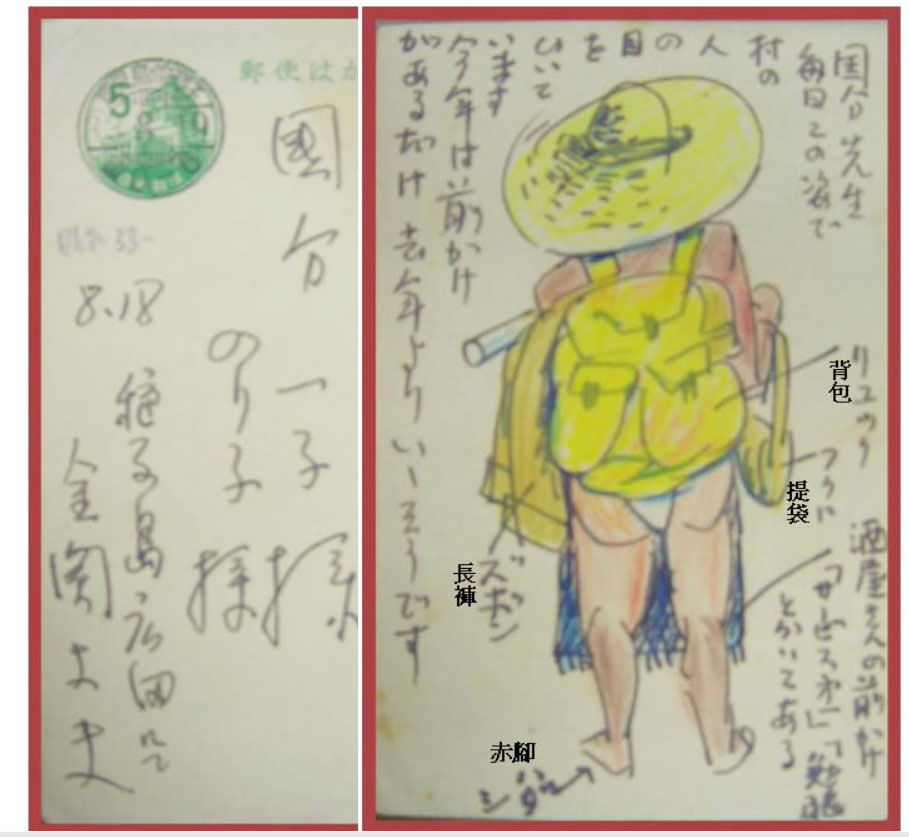 郵便はが
5
國分一子様
のり子様
昭和33
8.18
種子島・広田にて
金関丈夫
国分先生
毎日この姿で
村の
人の目を
ひいて
います
今年は前かけ
があるだけ去年よりいゝそうです
リュック
背包
フクロ
提袋
ズボン
長褲
酒屋さんの前かけ
とかいてある
ハダシ
赤腳